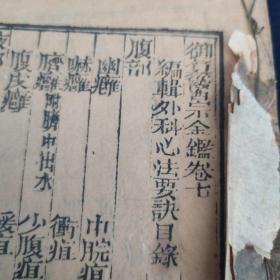 御纂醫宗金鑑卷七
編輯外科心法要訣目錄
腹部
幽癰 中脘疽
赫癰 衝疽
臍癰附臍中出水 少腹疽
腹皮癰 緩疽